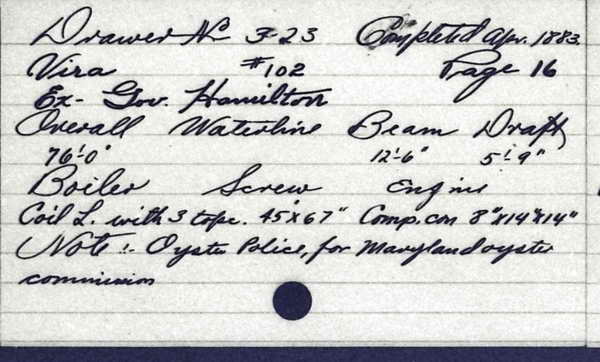 Drawer No 3-23 Completed Apr. 1883.
Vira #102 Page 16
Ex- Gov. Hamilton
Overall Waterline Beam Draft
76'-0" 12'-6" 5'-9"
Boiler Screw Engine
Coil L. with 3 tope. 45"x67" Comp. con 8"x14"x14"
Note:- Oyster Police, for Maryland oyster
commission